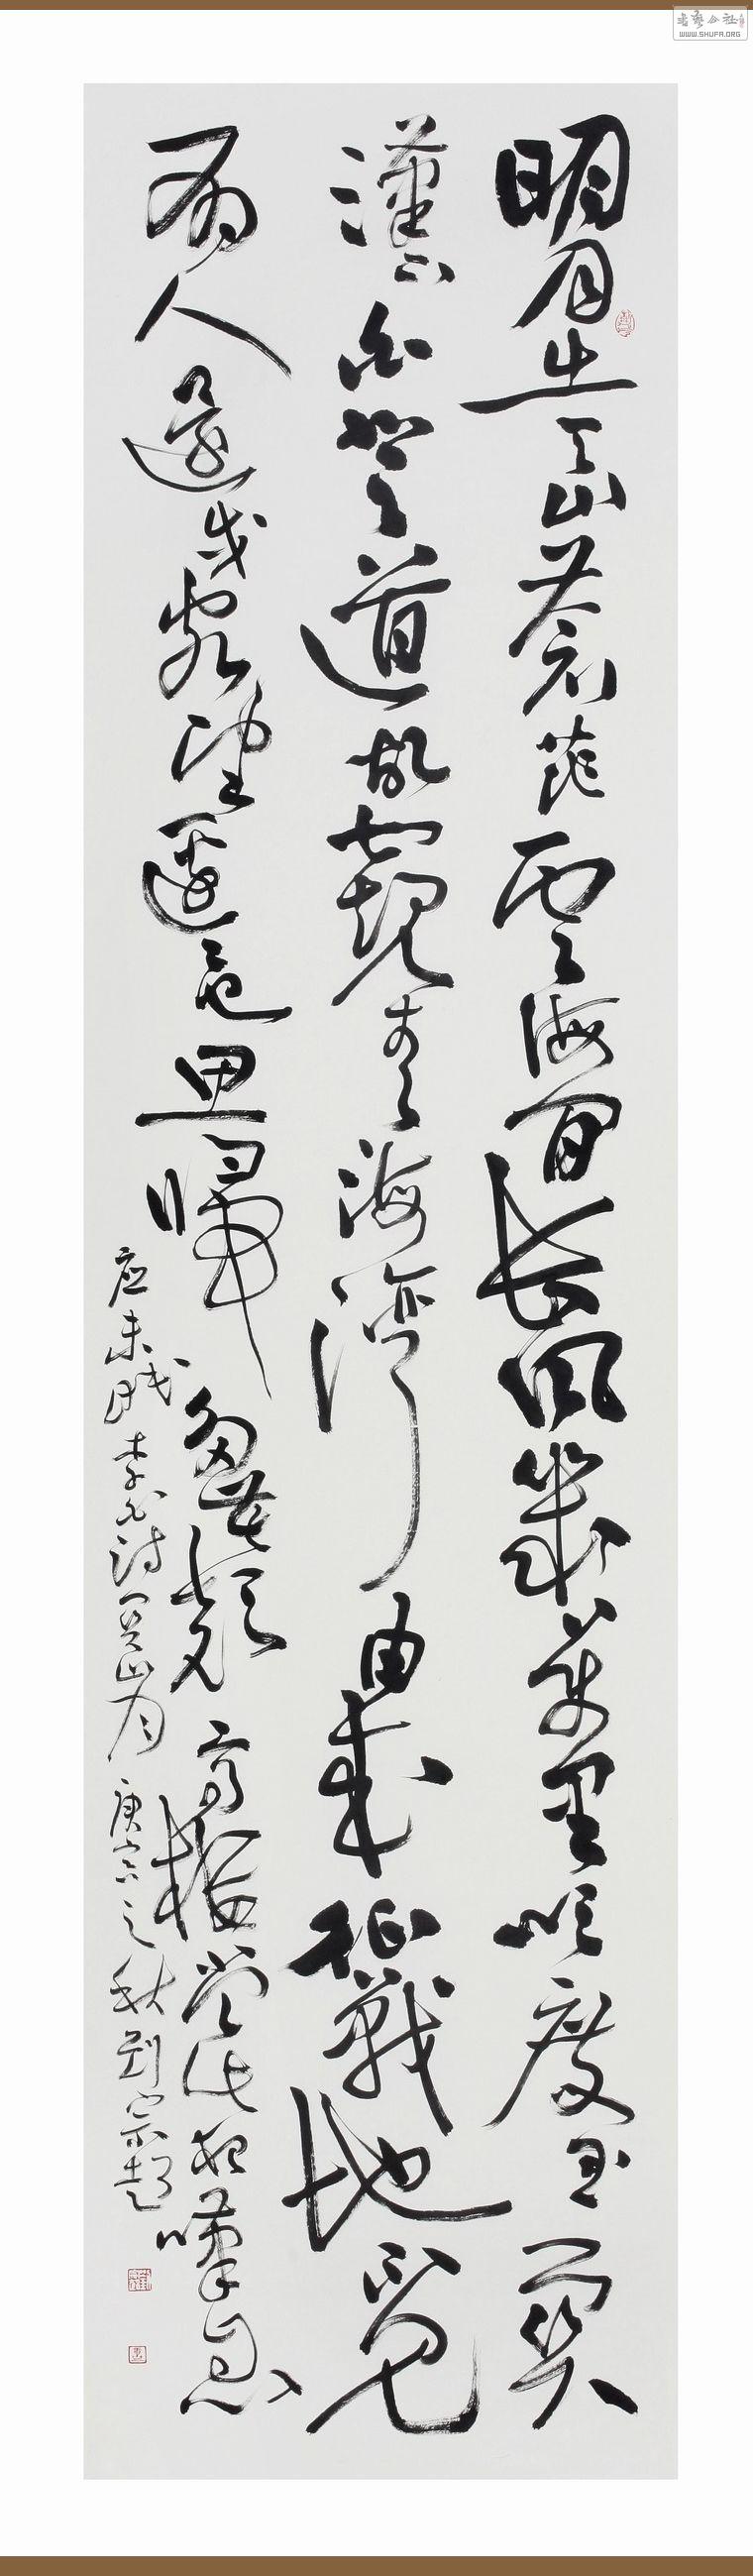 明月出天山蒼茫雲海間長風幾萬里吹度玉門關
漢下白登道胡窺青海灣由來征戰地不見
有人還戍客望邊色思歸多苦顏高樓當此夜嘆息
應未閑 李白詩關山月 庚寅之秋 劉宗超
书艺公社
WWW.SHUFA.ORG